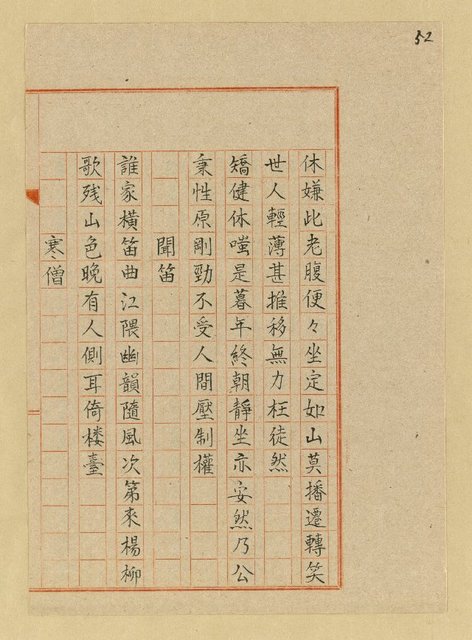 52
休嫌此老腹便々坐定如山莫播遷轉笑
世人輕薄甚推移無力枉徒然
矯健休嗤是暮年終朝靜坐亦安然乃公
秉性原剛勁不受人間壓制權
聞笛
誰家橫笛曲江隈幽韻隨風次第來楊柳
歌残山色晚有人側耳倚楼臺
寒僧